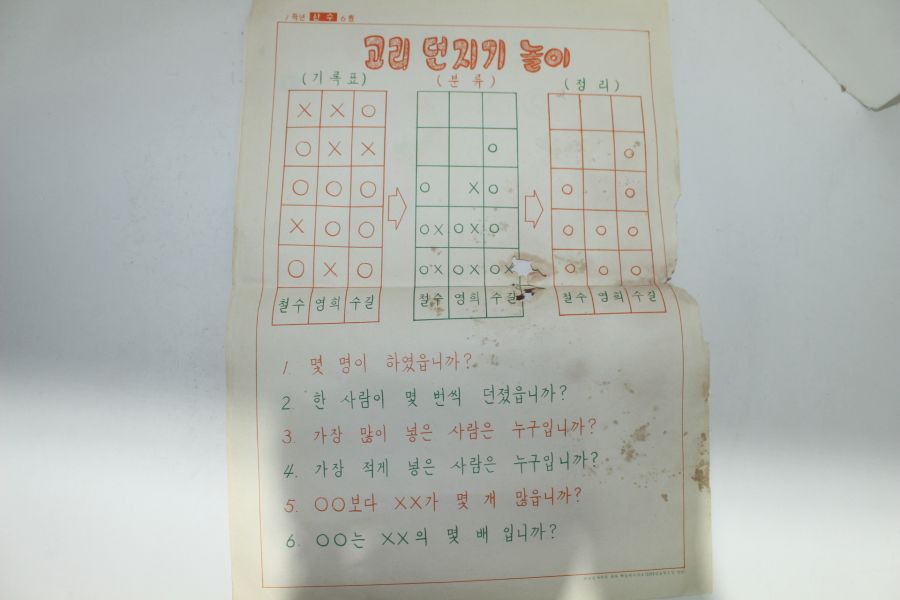 1 학년 산수 6월
고리 던지기 놀이
(기록표) (분류) (정리)
× × ○
○ × × ○ ○
○ ○ ○ ○ × ○ ○ ○
× ○ ○ ○× ○× ○ ○ ○ ○
○ × ○ ○× ○× ○× ○ ○ ○
철수 영희 수길 철수 영희 수길 철수 영희 수길
1. 몇 명이 하였읍니까?
2. 한 사람이 몇 번씩 던졌읍니까?
3. 가장 많이 넣은 사람은 누구입니까?
4. 가장 적게 넣은 사람은 누구입니까?
5. ○○보다 ××가 몇 개 많읍니까?
6. ○○는 ××의 몇 배 입니까?